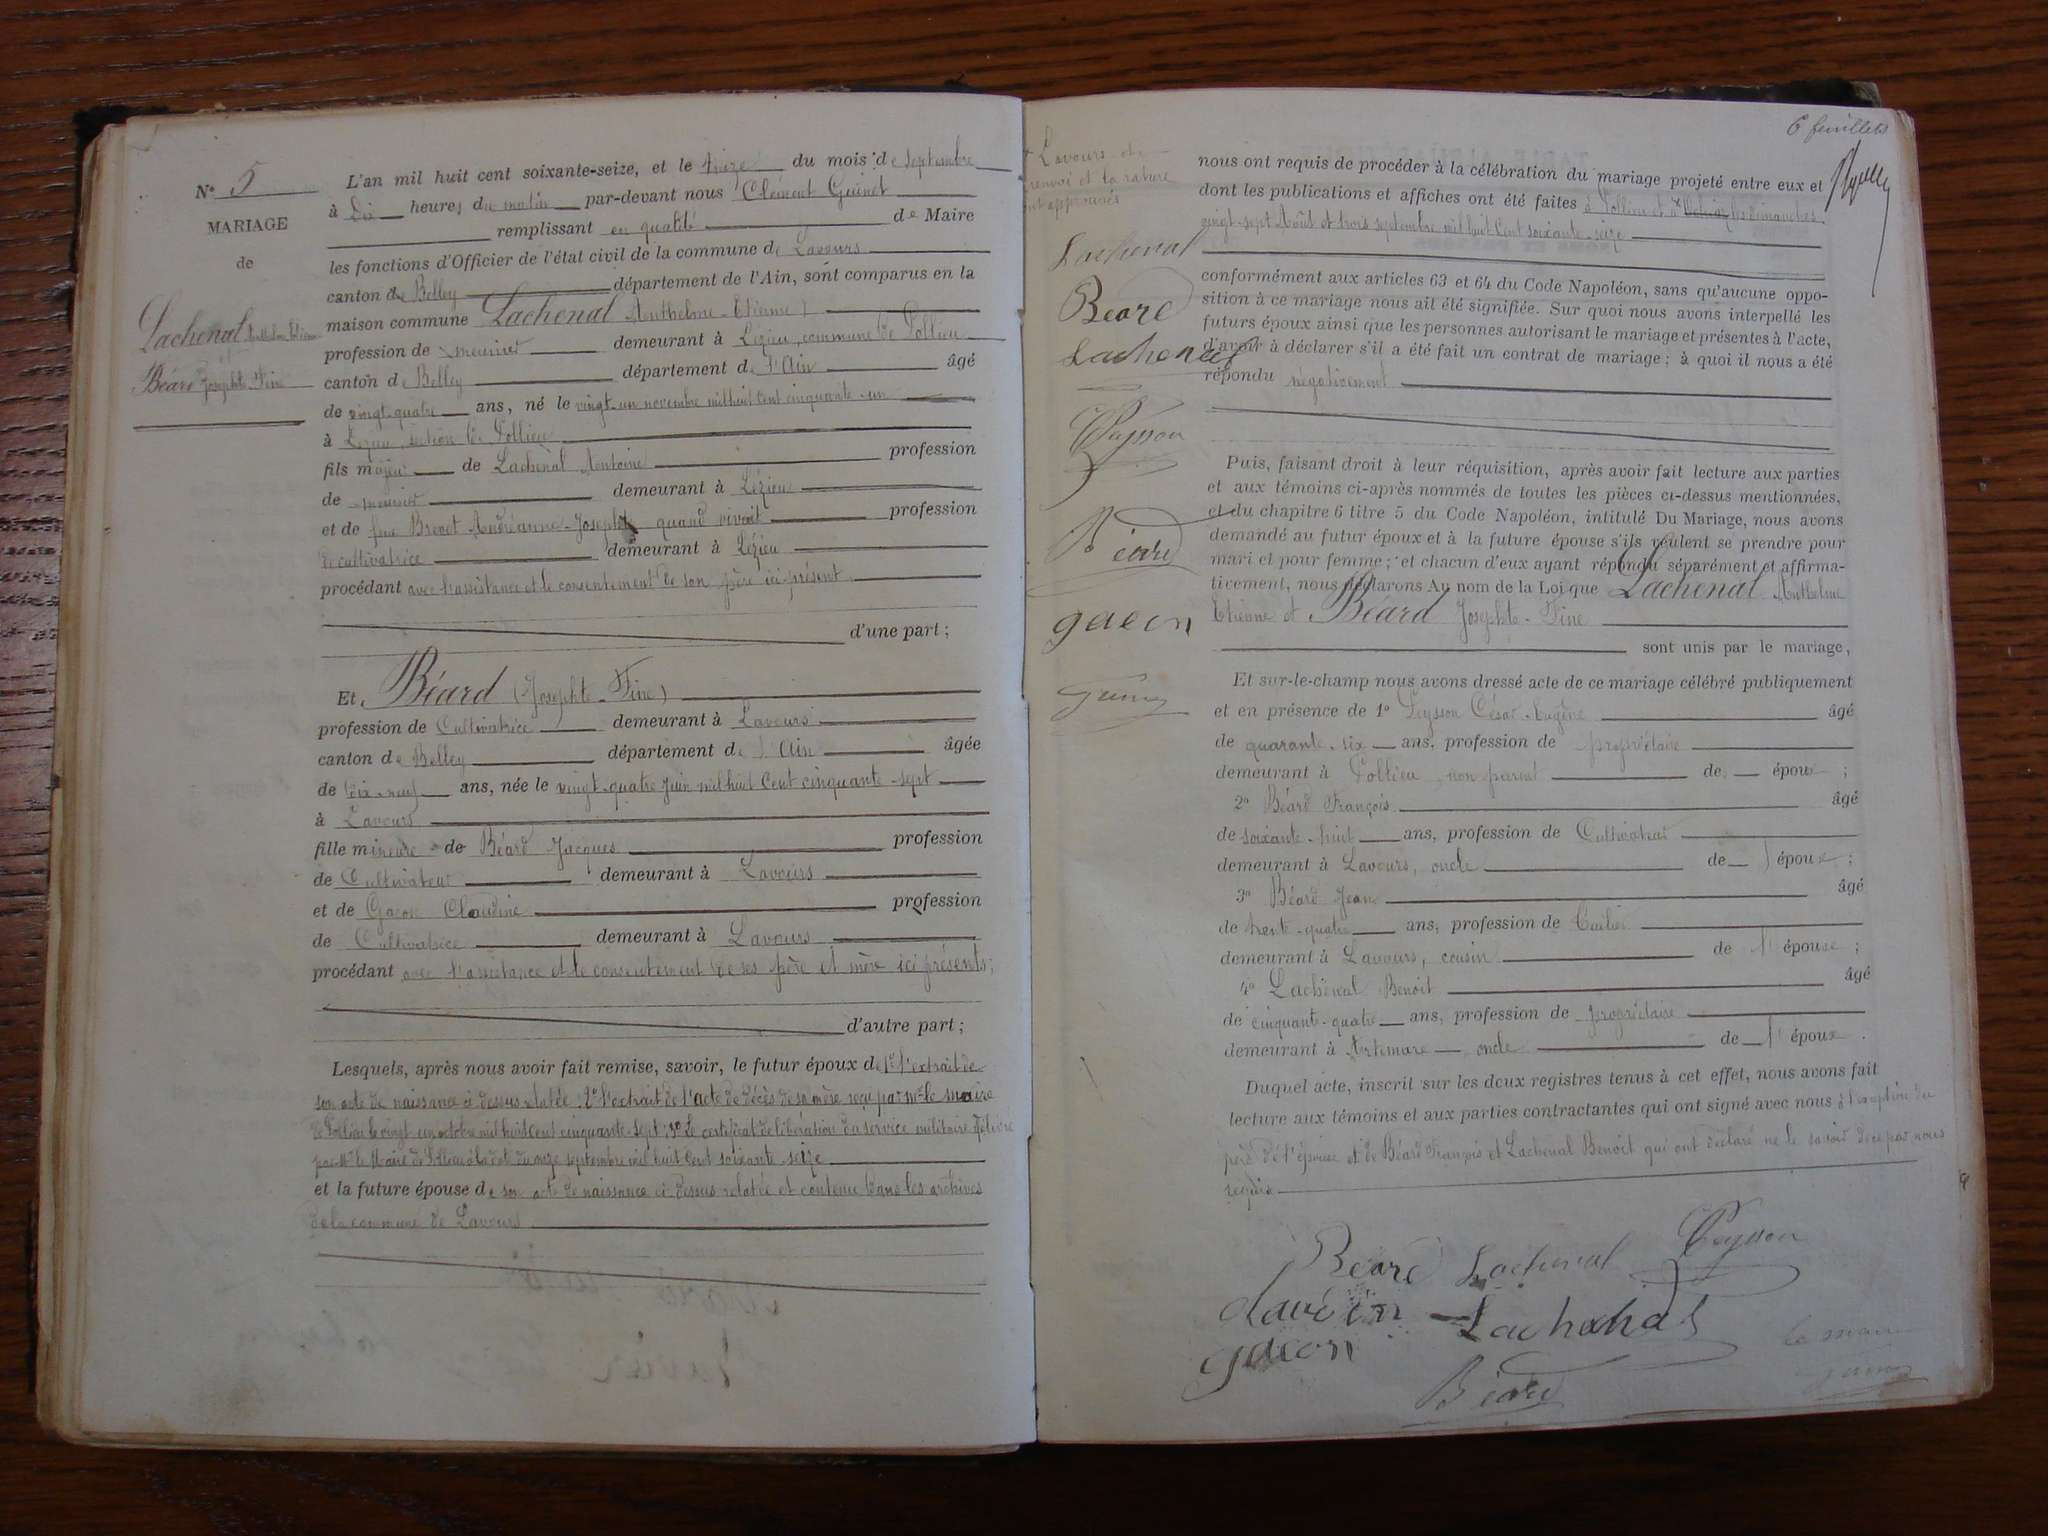 N° 5
MARIAGE
de
Lachenal Anthelme Etienne
Béard Josephte Fine
L'an mil huit cent soixante-seize, et le treize du mois de septembre
à dix heures du matin par-devant nous Clément Guinet
remplissant en qualité de Maire
les fonctions d'Officier de l'état civil de la commune de Lavours
canton de Belley département de l'Ain, sont comparus en la
maison commune Lachenal Anthelme-Etienne)
profession de meunier demeurant à Lézieu, commune de Pollieu
canton de Belley département de l'Ain âgé
de vingt-quatre ans, né le vingt-un novembre mil huit cent cinquante-un
à Lézieu, section de Pollieu
fils majeur de Lachenal Antoine profession
de meunier demeurant à Lézieu
et de feue Brevet Andréanne-Josephte quand vivait profession
de cultivatrice demeurant à Lézieu
procédant avec l'assistance et le consentement de son père ici présent
d'une part ;
Et Béard (Josephte-Fine)
profession de Cultivatrice demeurant à Lavours
canton de Belley département de l'Ain âgée
de dix-neuf ans, née le vingt-quatre juin mil huit cent cinquante-sept
à Lavours
fille mineure de Béard Jacques profession
de Cultivateur demeurant à Lavours
et de Gacon Claudine profession
de Cultivatrice demeurant à Lavours
procédant avec l'assistance et le consentement de ses père et mère ici présents ;
d'autre part ;
Lesquels, après nous avoir fait remise, savoir, le futur époux de 1° l'extrait de
son acte de naissance ci dessus relatée ; 2° l'extrait de l'acte de décès de sa mère reçu par Mr le maire
de Pollieu le vingt un octobre mil huit cent cinquante-sept ; 3° Le certificat de libération du service militaire délivré
par Mr le Maire de Pollieu à la date du onze septembre mil huit cent soixante-seize
et la future épouse de son acte de naissance ci dessus relatée et contenu dans les archives
de la commune de Lavours
6 feuillets
+ Lavours et
renvoi et la rature
ont approuvés
Lachenal
Beard
Lachenal
Peysson
Béard
gacon
nous ont requis de procéder à la célébration du mariage projeté entre eux et
dont les publications et affiches ont été faites à Pollieu et à + les dimanches
vingt-sept Août et trois septembre mil huit cent soixante-seize
conformément aux articles 63 et 64 du Code Napoléon, sans qu'aucune oppo-
sition à ce mariage nous ait été signifiée. Sur quoi nous avons interpellé les
futurs époux ainsi que les personnes autorisant le mariage et présentes à l'acte,
d'avoir à déclarer s'il a été fait un contrat de mariage ; à quoi il nous a été
répondu négativement
Puis, faisant droit à leur réquisition, après avoir fait lecture aux parties
et aux témoins ci-après nommés de toutes les pièces ci-dessus mentionnées,
et du chapitre 6 titre 5 du Code Napoléon, intitulé Du Mariage, nous avons
demandé au futur époux et à la future épouse s'ils veulent se prendre pour
mari et pour femme ; et chacun d'eux ayant répondu séparément et affirma-
tivement, nous déclarons Au nom de la Loi que Lachenal Anthelme
Etienne et Béard Josephte-Fine
sont unis par le mariage,
Et sur-le-champ nous avons dressé acte de ce mariage célébré publiquement
et en présence de 1° Peysson César-Eugène âgé
de quarante-six ans, profession de propriétaire
demeurant à Pollieu non parent de époux ;
2° Béard François âgé
de soixante-huit ans, profession de Cultivateur
demeurant à Lavours, oncle de l'épouse ;
3° Béard Jean âgé
de trente-quatre ans, profession de Tuilier
demeurant à Lavours, cousin de l'épouse ;
4° Lachenal Benoit âgé
de cinquante-quatre ans, profession de propriétaire
demeurant à Artemare oncle de l'époux .
Duquel acte, inscrit sur les deux registres tenus à cet effet, nous avons fait
lecture aux témoins et aux parties contractantes qui ont signé avec nous à l'exception du
père de l'épouse et de Béard François et Lachenal Benoit qui ont déclaré ne le savoir de ce par nous
requis
Béard Lachenal Peysson
claudin Lachenal
gacon
le maire
Béard